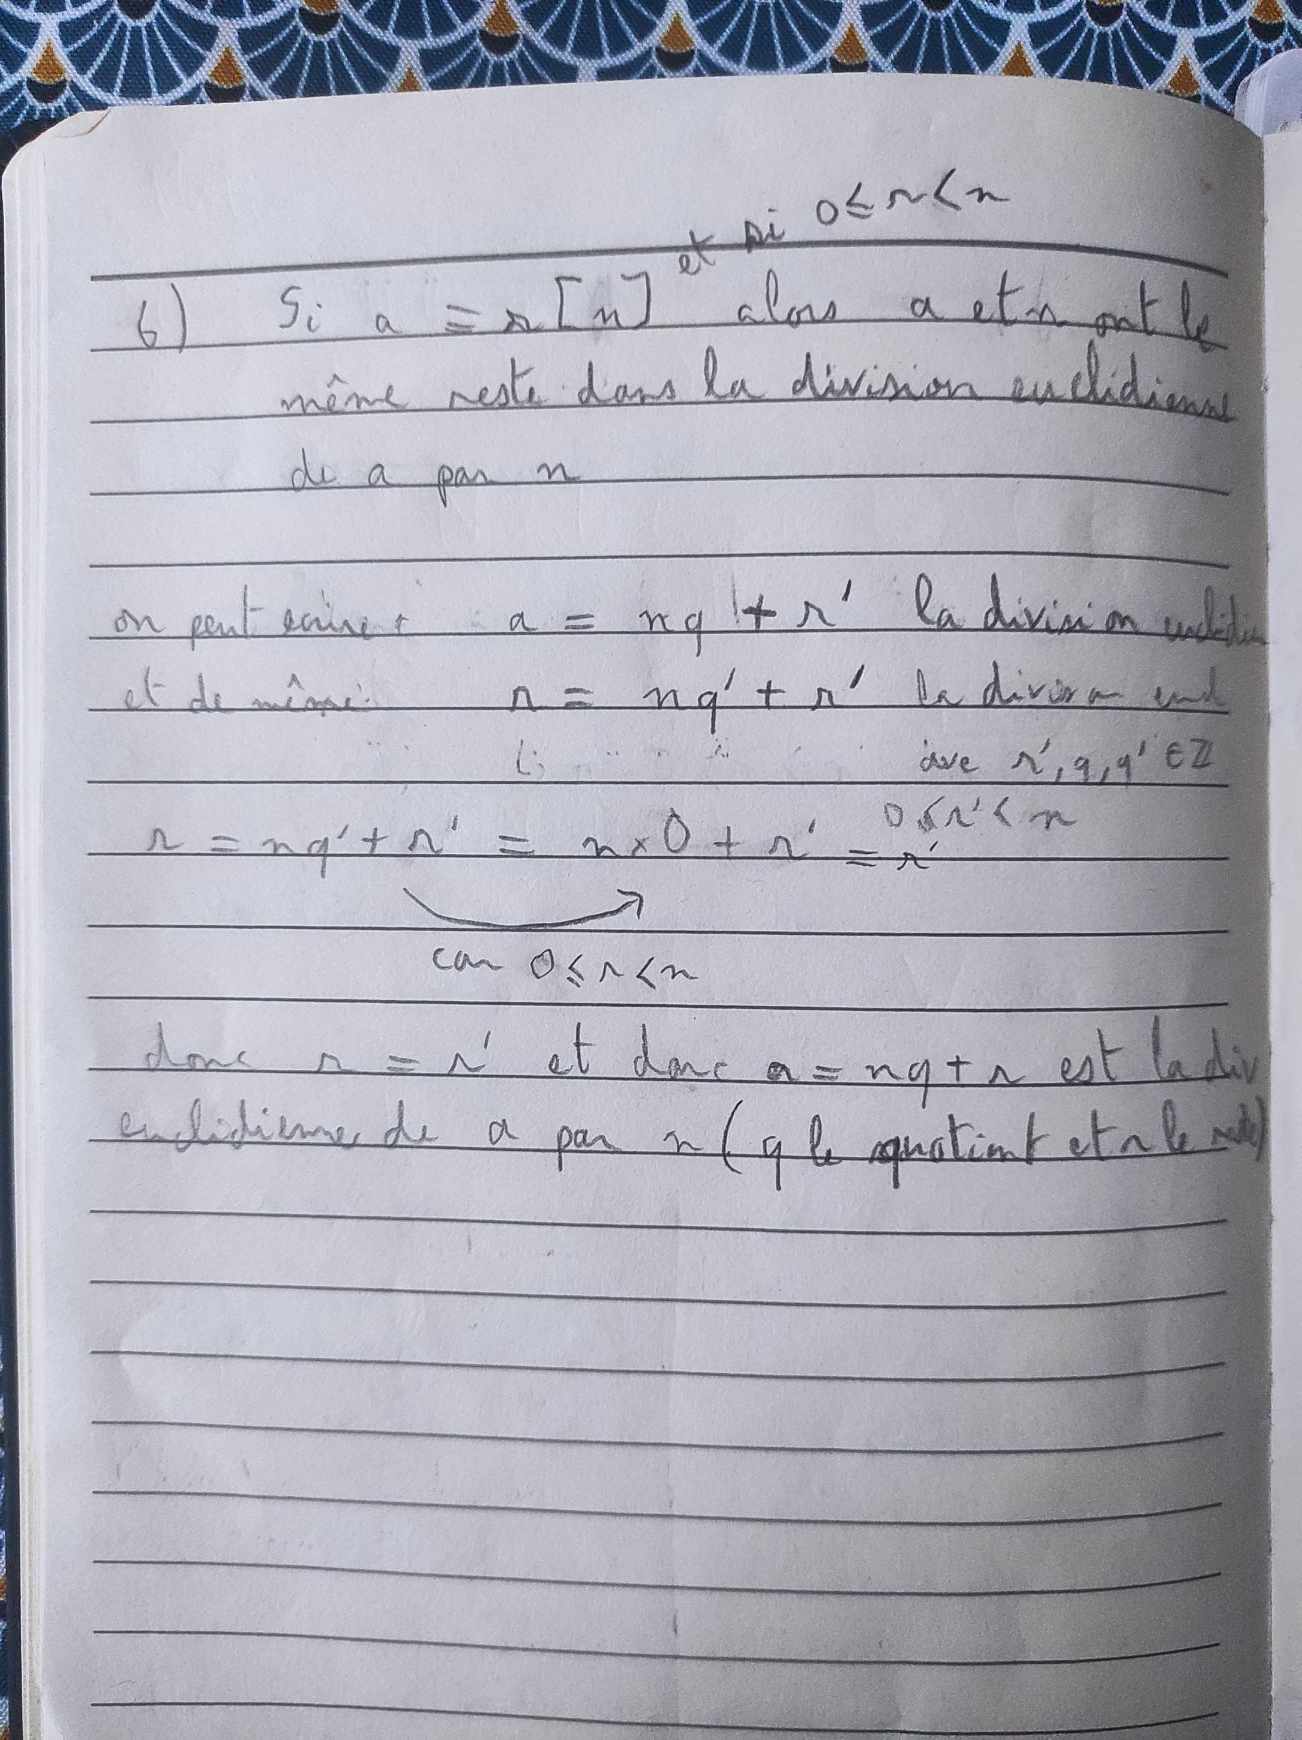 et si 0 ≤ r < n
6) Si a ≡ r [n] alors a et r ont le
même reste dans la division euclidienne
de a par n
on peut écrire : a = nq + r' la division euclidie
et de même : r = nq' + r' la division eucl
ave r', q, q' ∈ ℤ
0 ≤ r' < n
r = nq' + r' = n × 0 + r' = r'
car 0 ≤ r < n
donc r = r' et donc a = nq + r est la div
euclidienne de a par n ( q le quotient et r le reste)